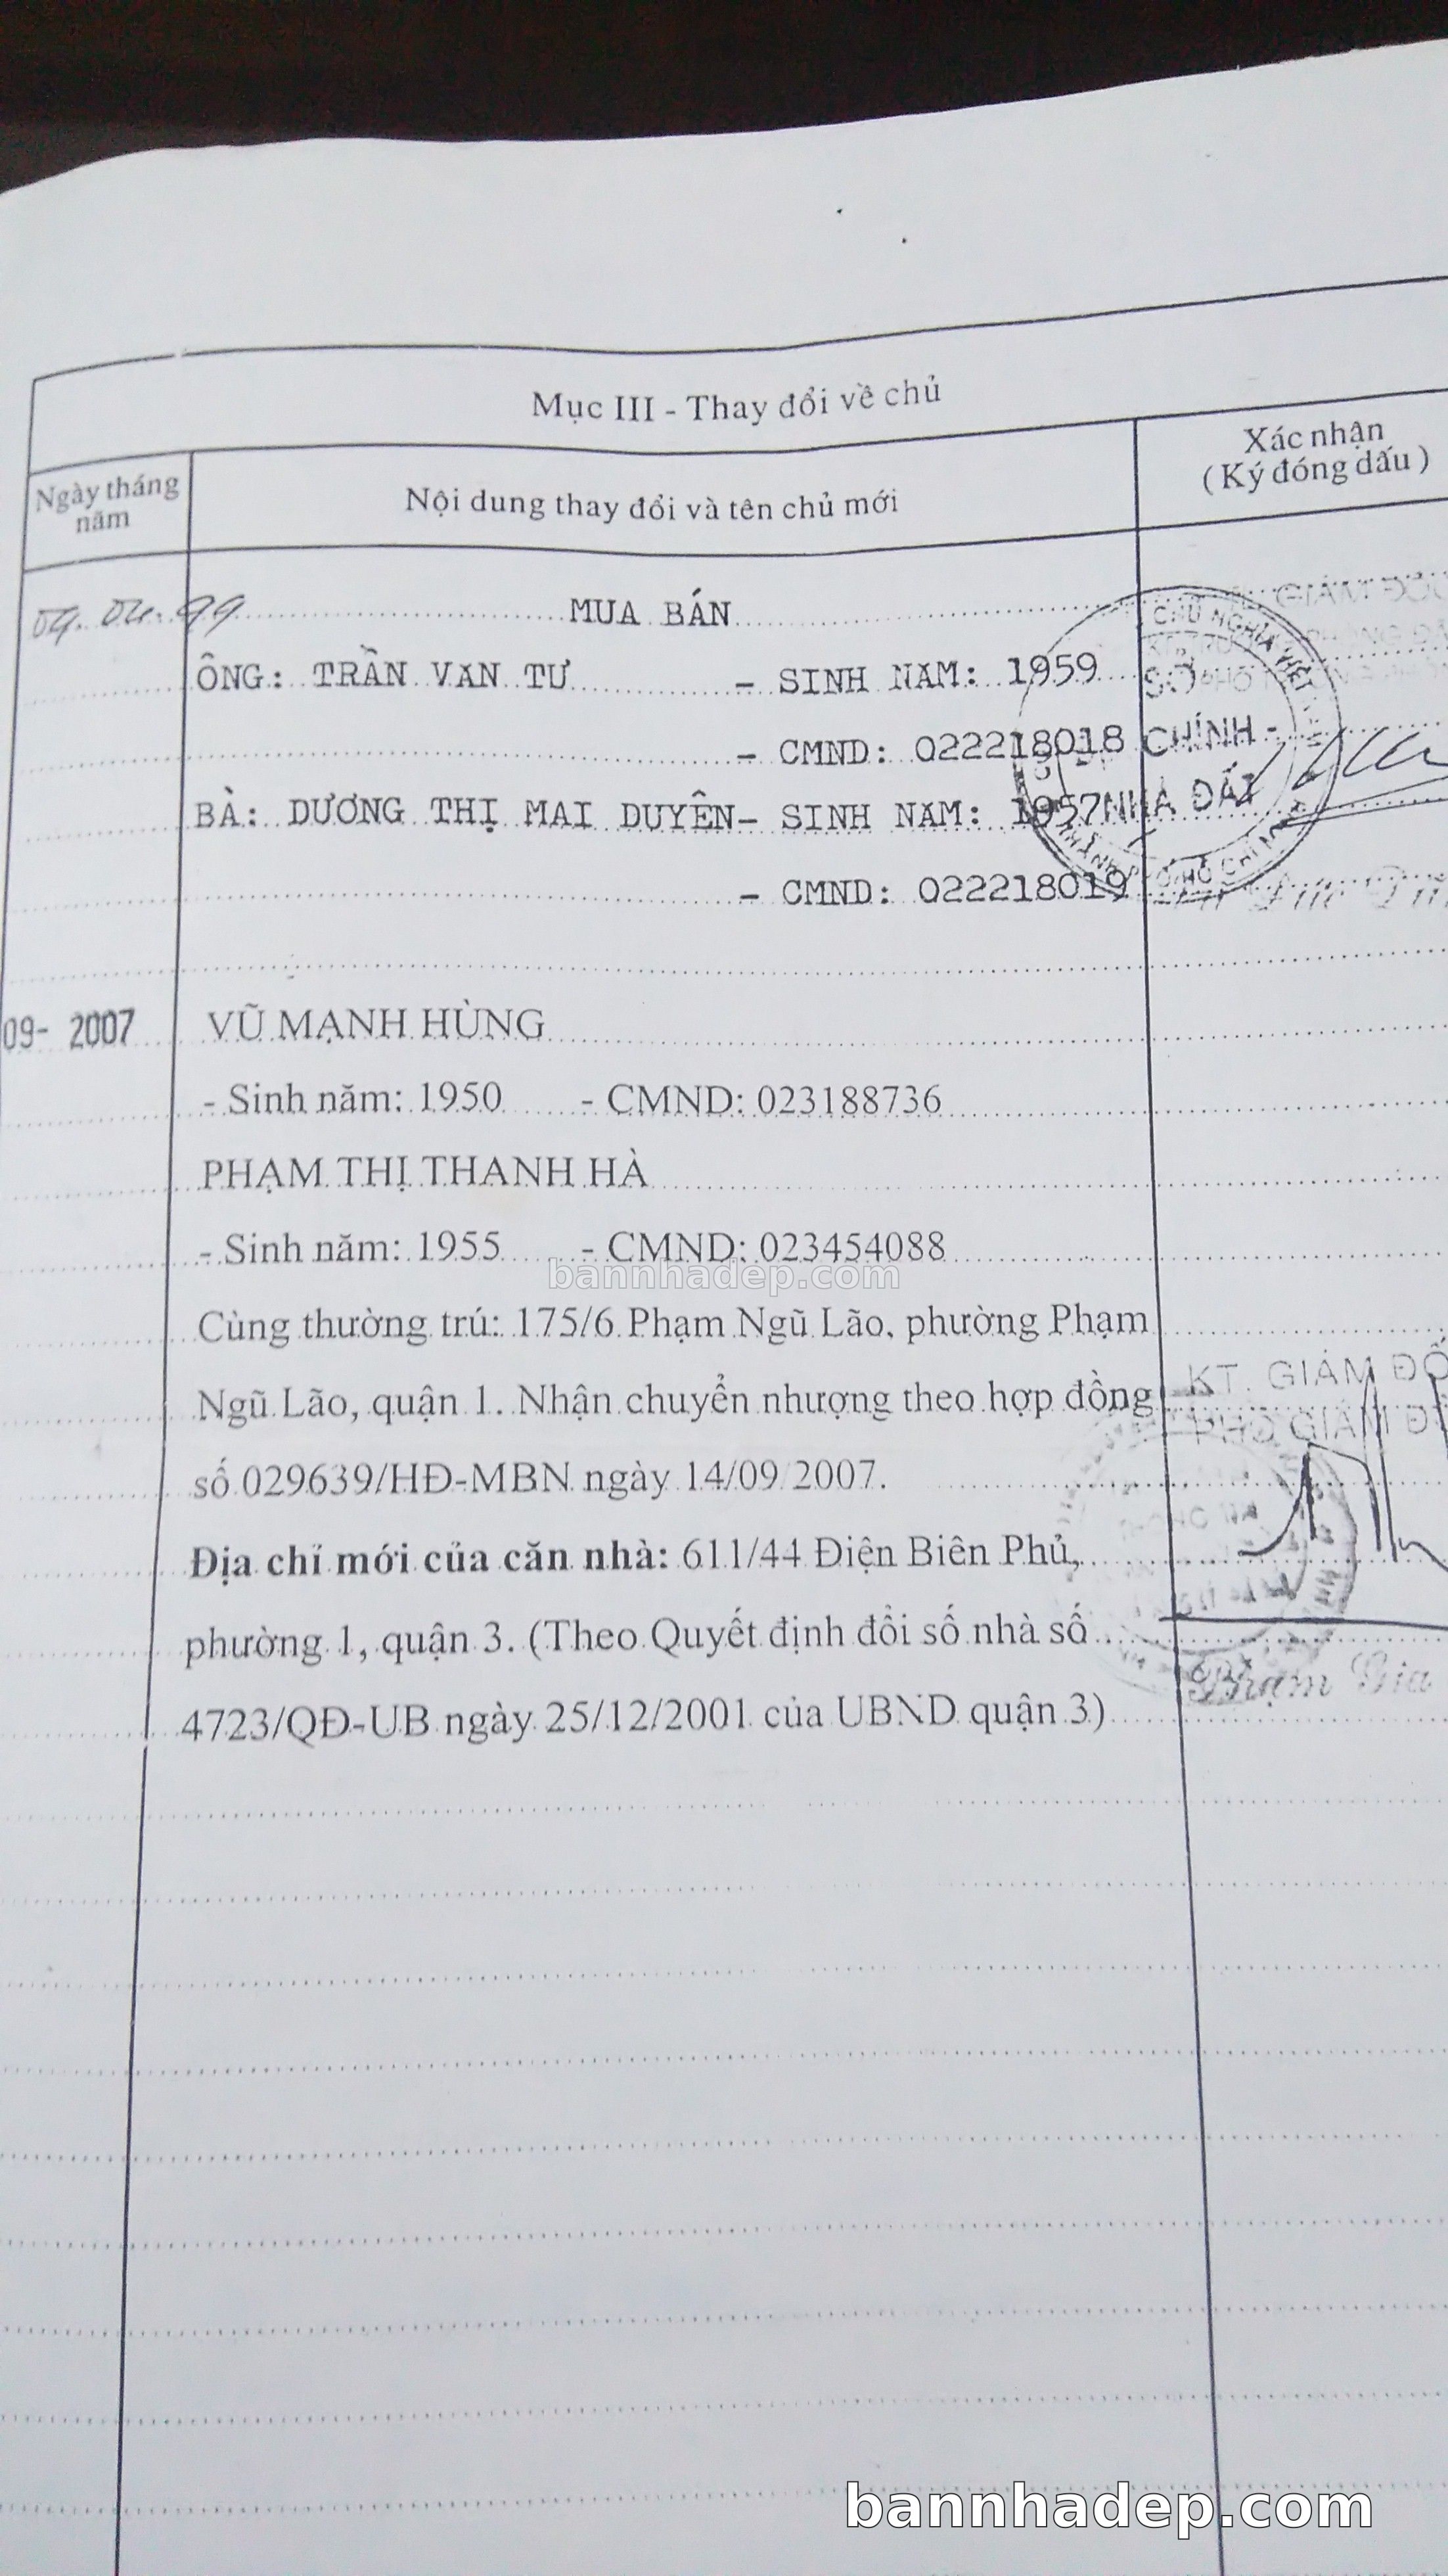 Mục III - Thay đổi về chủ
Ngày tháng năm
Nội dung thay đổi và tên chủ mới
Xác nhận
( Ký đóng dấu )
GIÁM ĐỐC
99 MUA BÁN
ÔNG: TRẦN VAN TƯ - SINH NAM: 1959
- CMND: 022218018
SỞ
CHÍNH -
BÀ: DƯƠNG THỊ MAI DUYÊN - SINH NAM: 1957
NHÀ ĐẤT
- CMND: 022218019
09- 2007 VŨ MẠNH HÙNG
- Sinh năm: 1950 - CMND: 023188736
PHẠM THỊ THANH HÀ
- Sinh năm: 1955 - CMND: 023454088
bannhadep.com
Cùng thường trú: 175/6 Phạm Ngũ Lão, phường Phạm
Ngũ Lão, quận 1. Nhận chuyển nhượng theo hợp đồng
KT. GIÁM ĐỐ
PHÓ GIÁM Đ
số 029639/HĐ-MBN ngày 14/09/2007.
Địa chỉ mới của căn nhà: 611/44 Điện Biên Phủ,
phường 1, quận 3. (Theo Quyết định đổi số nhà số
4723/QĐ-UB ngày 25/12/2001 của UBND quận 3)
Phạm Gia
bannhadep.com